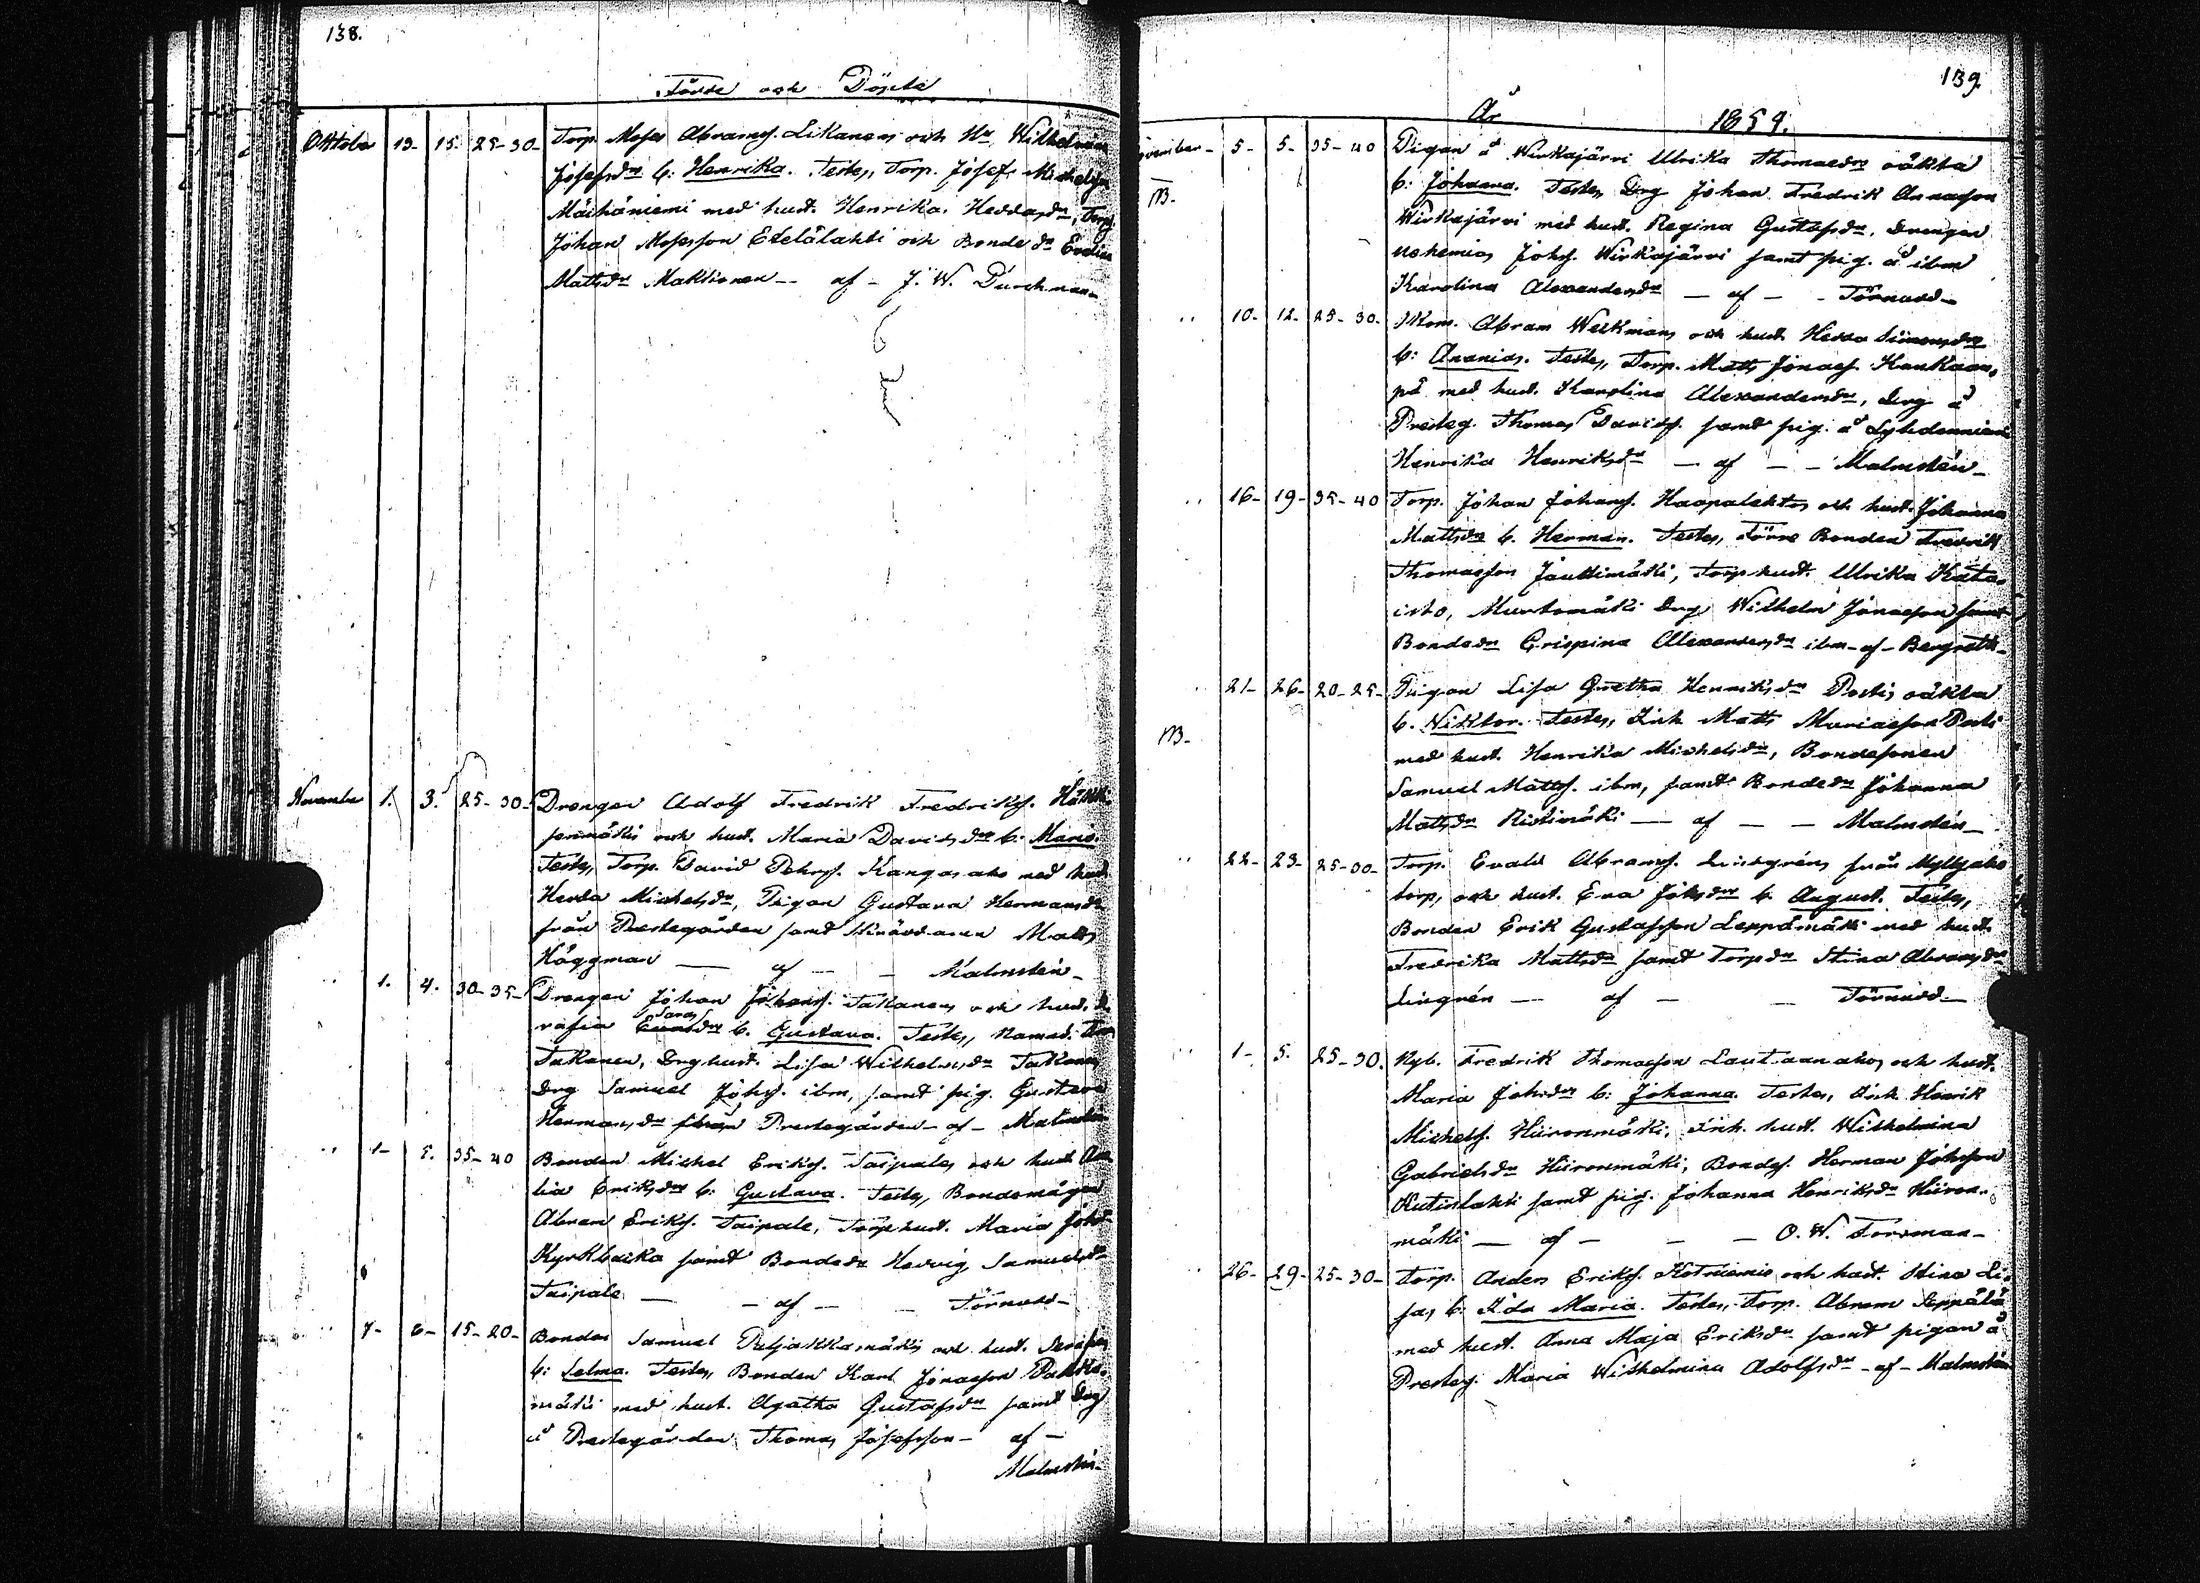 138.
Födde och Döpte
Oktober 13- 15- 25-30- Torp. Moses Abramss. Likanen och H:u Wilhelmina
Josefsdr b: Henrika. Testes, Torp. Josef Michelss.
med hust. Henrika Heddasdr, Torp.
Johan Mosesson Etelälahti och Bonde dr Evelina
Mattsdr Makkonen -- af - J. W. Durchman-
November 1. 3. 25-30- Drengen Adolf Fredrik Fredrikss.
och hust. Maria Davidsdr b: Maria.
Testes, Torp. David Pehrss. Kangasaho med hust.
Hedda Michelsdr, Pigan Gustava Hermansdr
från Prestegården samt Matts
Häggman — af - - Malmstén-
1. 4. 30-35- Drengen Johan Johanss. Takanen och hust.
b. Gustava. Testes,
Takanen, Drghust. Lisa Wilhelmsdr Takanen
Drg Samuel Johss. ibm, samt pig. Gustava
Hermansdr från Prestegården - af - Malmstén
1- 5. 35-40 Bonden Michel Erikss. Taipale och hust.
Eriksdr b: Gustava. Testes, Bondemågen
Abram Erikss. Taipale, Torphust. Maria
Kyrkbacka samt Bondedr Hedvig Samuelsdr
Taipale — - af - - Törnudd-
7- 6- 15-20- Bonden Samuel Petjakkamäki och hust.
b: Selma. Testes, Bonden Karl Jonasson
mäki med hust. Agatha Gustafsdr samt Drg
å Prestegården Thomas Josefsson - af -
Malmstén-
139.
År 1859.
November - 5- 5- 35-40 Pigan å Wirkajärvi Ulrika Thomasdrs oäkta
B. b: Johanna. Testes, Drg Johan Fredrik Annasson
Wirkajärvi med hust. Regina Gustafsdr, Drengen
Nehemias Johss. Wirkajärvi samt pig. å ibm
Karolina Alexandersdr — af - - Törnudd-
" 10- 12- 25-30- Abram Weckman och hust. Hedda Simonsdr
b: Ananias. Testes, Torp. Matts Jonass. Kankaan-
pä med hust. Karolina Alexandersdr, Drg å
Presteg. Thomas Davidss. samt pig. å
Henrika Henriksdr — af - - Malmstén-
" 16- 19- 35-40 Torp. Johan Johanss. Haapalehto och hust. Johanna
Mattsdr b. Herman. Testes, Förre Bonden Fredrik
Thomasson Jauhimäki, Torphust. Ulrika Kata-
isto, Murtomäki Drg Wilhelm Jonasson samt
Bondedr Crispina Alexandersdr ibm - af - Bergroth-
" 21- 26- 20-25- Pigan Lisa Gretha Henriksdr Portis oäkta
B- b. Wiktor. Testes, Inh Matts Mariasson
med hust. Henrika Michelsdr, Bondesonen
Samuel Mattss. ibm, samt Bondedr Johanna
Mattsdr Ristimäki — af - - Malmstén-
" 22- 23- 25-30- Torp. Evald Abramss. Lindgrén från Myllyaho
torp, och hust. Eva Johsdr b. August. Testes,
Bonden Erik Gustafsson Leppämäki med hust.
Fredrika Mattsdr samt Torpdr Stina Abramsdr
Lingrén — af - - Törnudd-
" 1- 5. 25-30. Nyb. Fredrik Thomasson Lautaanaho och hust.
Maria Johsdr b: Johanna. Testes, Inh. Henrik
Michelss. Hiironmäki, Inh. hust. Wilhelmina
Gabrielsdr Hiironmäki, Bondes. Herman Johsson
samt pig. Johanna Henriksdr Hiiron-
mäki — af - - - O. W. Forsman-
" 26- 29- 25-30- Torp. Anders Erikss. Kotniemi och hust. Stina Li-
sas b: Ida Maria. Testes, Torp. Abram Seppälä
med hust. Anna Maja Eriksdr samt pigan å
Presteg. Maria Wilhelmina Adolfsdr - af - Malmstén